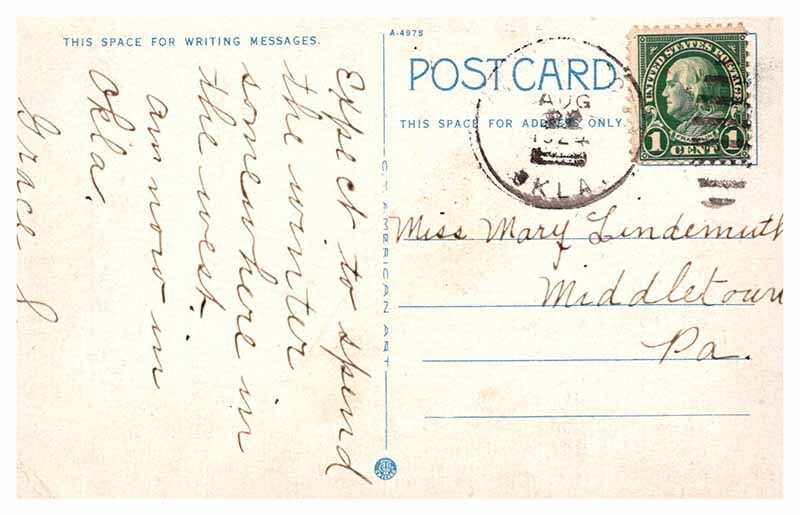 THIS SPACE FOR WRITING MESSAGES.
Expect to spend
the winter
somewhere in
the west.
am now in
Okla.
Grace
A-4975
POST CARD
THIS SPACE FOR ADDRESS ONLY.
C. T. AMERICAN ART
UNITED STATES POSTAGE
FRANKLIN
1 CENT 1
AUG
1924
OKLA.
Miss Mary Lindemuth
Middletown
Pa.